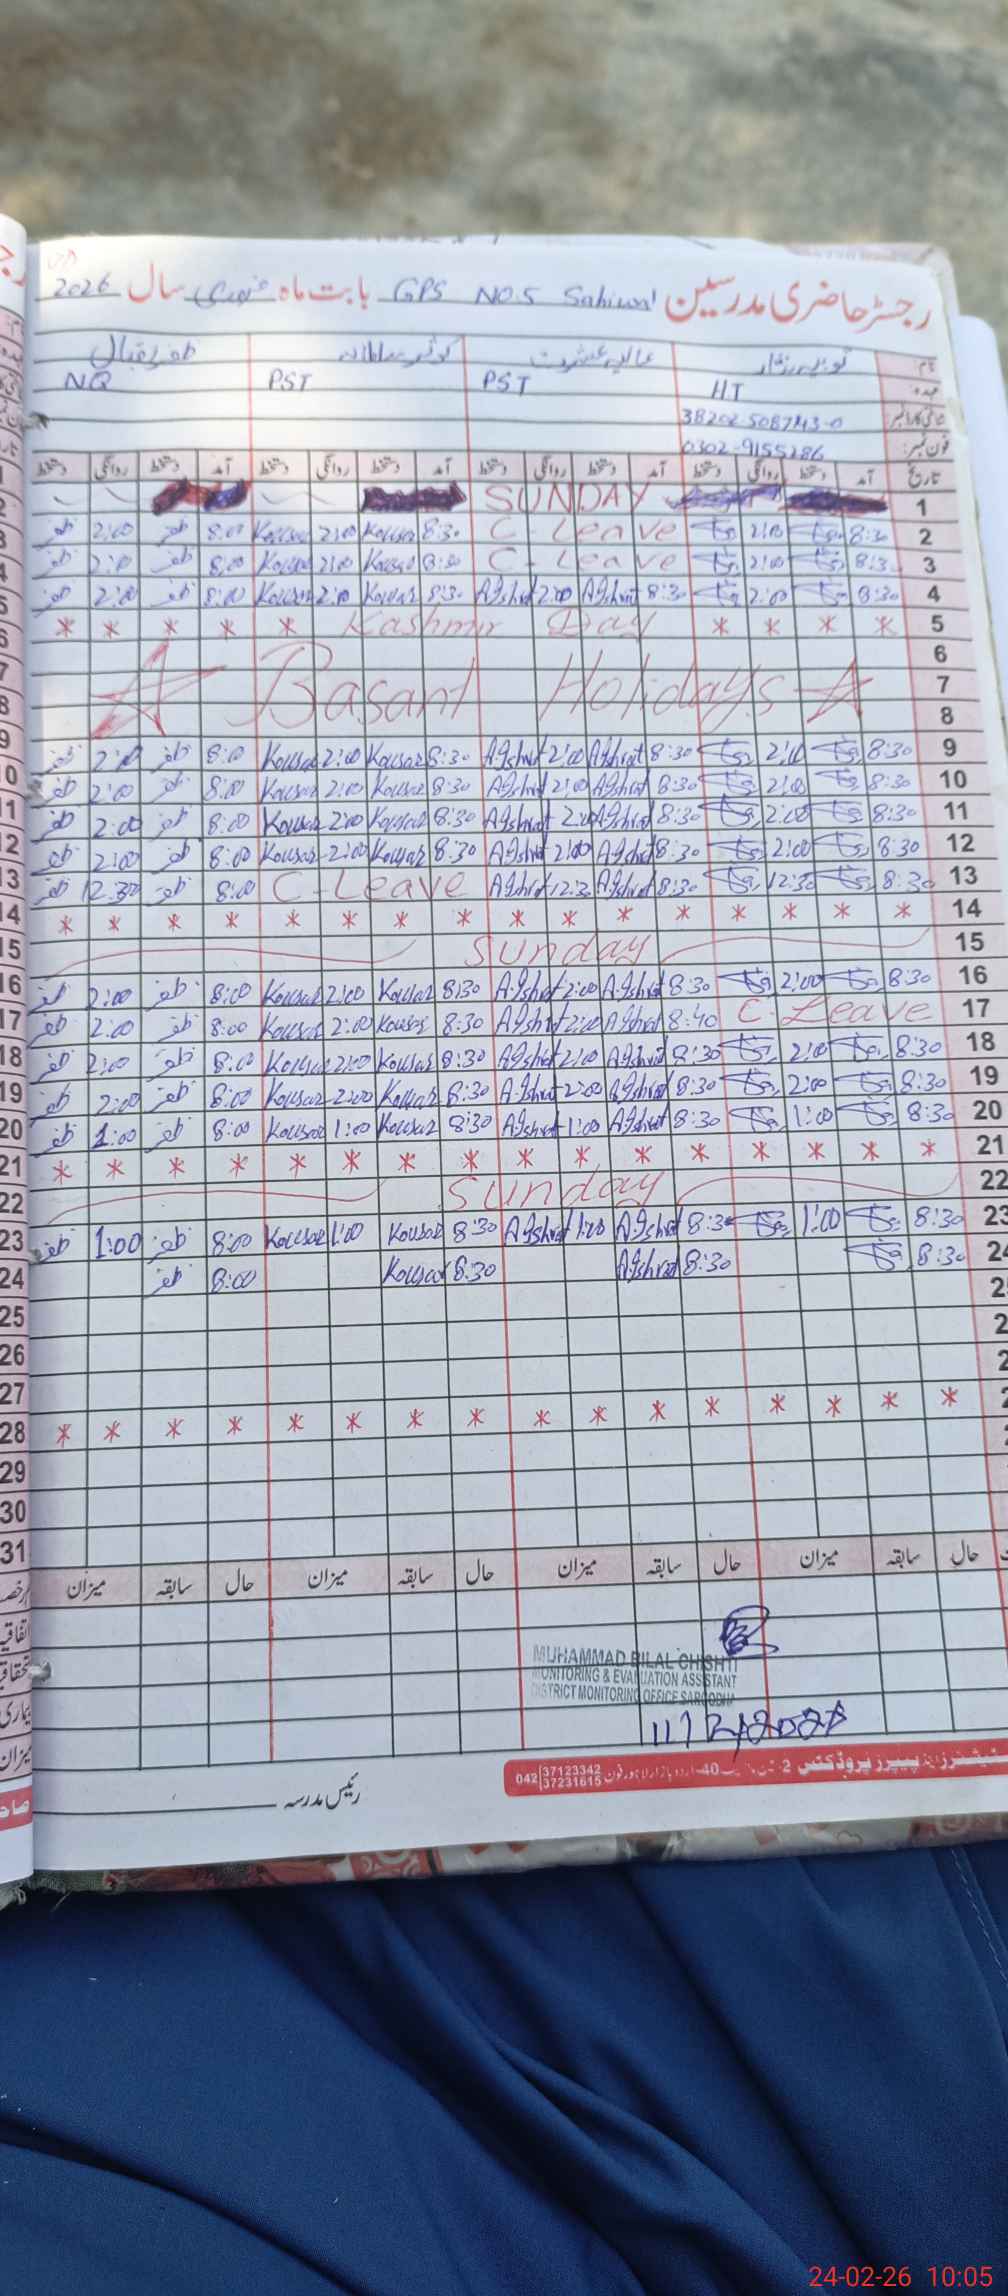 رجسٹر حاضری مدرسین GPS NO.5 Sahiwal بابت ماہ فروری سال 2026
نام:
عہدہ: HT PST PST NQ
شناختی کارڈ نمبر: 38202-5087143-0
فون نمبر: 0302-9155286
تاریخ آمد دستخط روانگی دستخط آمد دستخط روانگی دستخط آمد دستخط روانگی دستخط آمد دستخط روانگی دستخط
1 SUNDAY
2 8:30 2:00 C-Leave 8:30 Kousar 2:00 Kousar 8:00 ظفر 2:00 ظفر
3 8:30 2:00 C-Leave 8:30 Kousar 2:00 Kousar 8:00 ظفر 2:00 ظفر
4 8:30 2:00 8:30 A.Ishrat 2:00 A.Ishrat 8:30 Kousar 2:00 Kousar 8:00 ظفر 2:00 ظفر
5 * * * * Kashmir Day * * * * *
6
7 Basant Holidays
8
9 8:30 2:00 8:30 A.Ishrat 2:00 A.Ishrat 8:30 Kousar 2:00 Kousar 8:00 ظفر 2:00 ظفر
10 8:30 2:00 8:30 A.Ishrat 2:00 A.Ishrat 8:30 Kousar 2:00 Kousar 8:00 ظفر 2:00 ظفر
11 8:30 2:00 8:30 A.Ishrat 2:00 A.Ishrat 8:30 Kousar 2:00 Kousar 8:00 ظفر 2:00 ظفر
12 8:30 2:00 8:30 A.Ishrat 2:00 A.Ishrat 8:30 Kousar 2:00 Kousar 8:00 ظفر 2:00 ظفر
13 8:30 12:30 8:30 A.Ishrat 12:3 A.Ishrat C-Leave 8:00 ظفر 12:30 ظفر
14 * * * * * * * * * * * * * * *
15 Sunday
16 8:30 2:00 8:30 A.Ishrat 2:00 A.Ishrat 8:30 Kousar 2:00 Kousar 8:00 ظفر 2:00 ظفر
17 C-Leave 8:40 A.Ishrat 2:00 A.Ishrat 8:30 Kousar 2:00 Kousar 8:00 ظفر 2:00 ظفر
18 8:30 2:00 8:30 A.Ishrat 2:00 A.Ishrat 8:30 Kousar 2:00 Kousar 8:00 ظفر 2:00 ظفر
19 8:30 2:00 8:30 A.Ishrat 2:00 A.Ishrat 8:30 Kousar 2:00 Kousar 8:00 ظفر 2:00 ظفر
20 8:30 1:00 8:30 A.Ishrat 1:00 A.Ishrat 8:30 Kousar 1:00 Kousar 8:00 ظفر 1:00 ظفر
21 * * * * * * * * * * * * * * * *
22 Sunday
23 8:30 1:00 8:30 A.Ishrat 1:00 A.Ishrat 8:30 Kousar 1:00 Kousar 8:00 ظفر 1:00 ظفر
24 8:30 8:30 A.Ishrat 8:30 Kousar 8:00 ظفر
25
26
27
28 * * * * * * * * * * * * * * * *
29
30
31
حال سابقہ میزان حال سابقہ میزان حال سابقہ میزان حال سابقہ میزان
MUHAMMAD BILAL CHISHTI
MONITORING & EVALUATION ASSISTANT
DISTRICT MONITORING OFFICE SARGODHA
042 37123342
37231615
رئیس مدرسہ
24-02-26 10:05